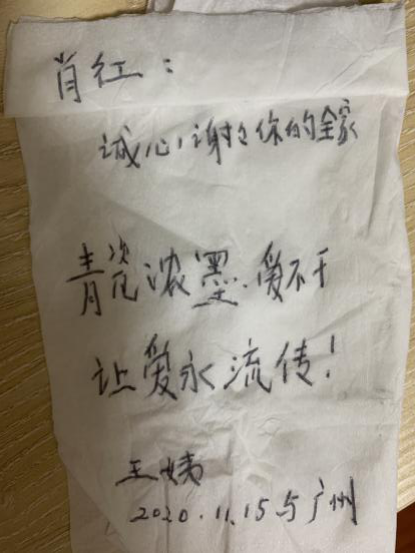 肖红：
诚心谢谢你的全家
青瓷浓墨.爱不干
让爱永流传！
王姨
2020.11.15与广州